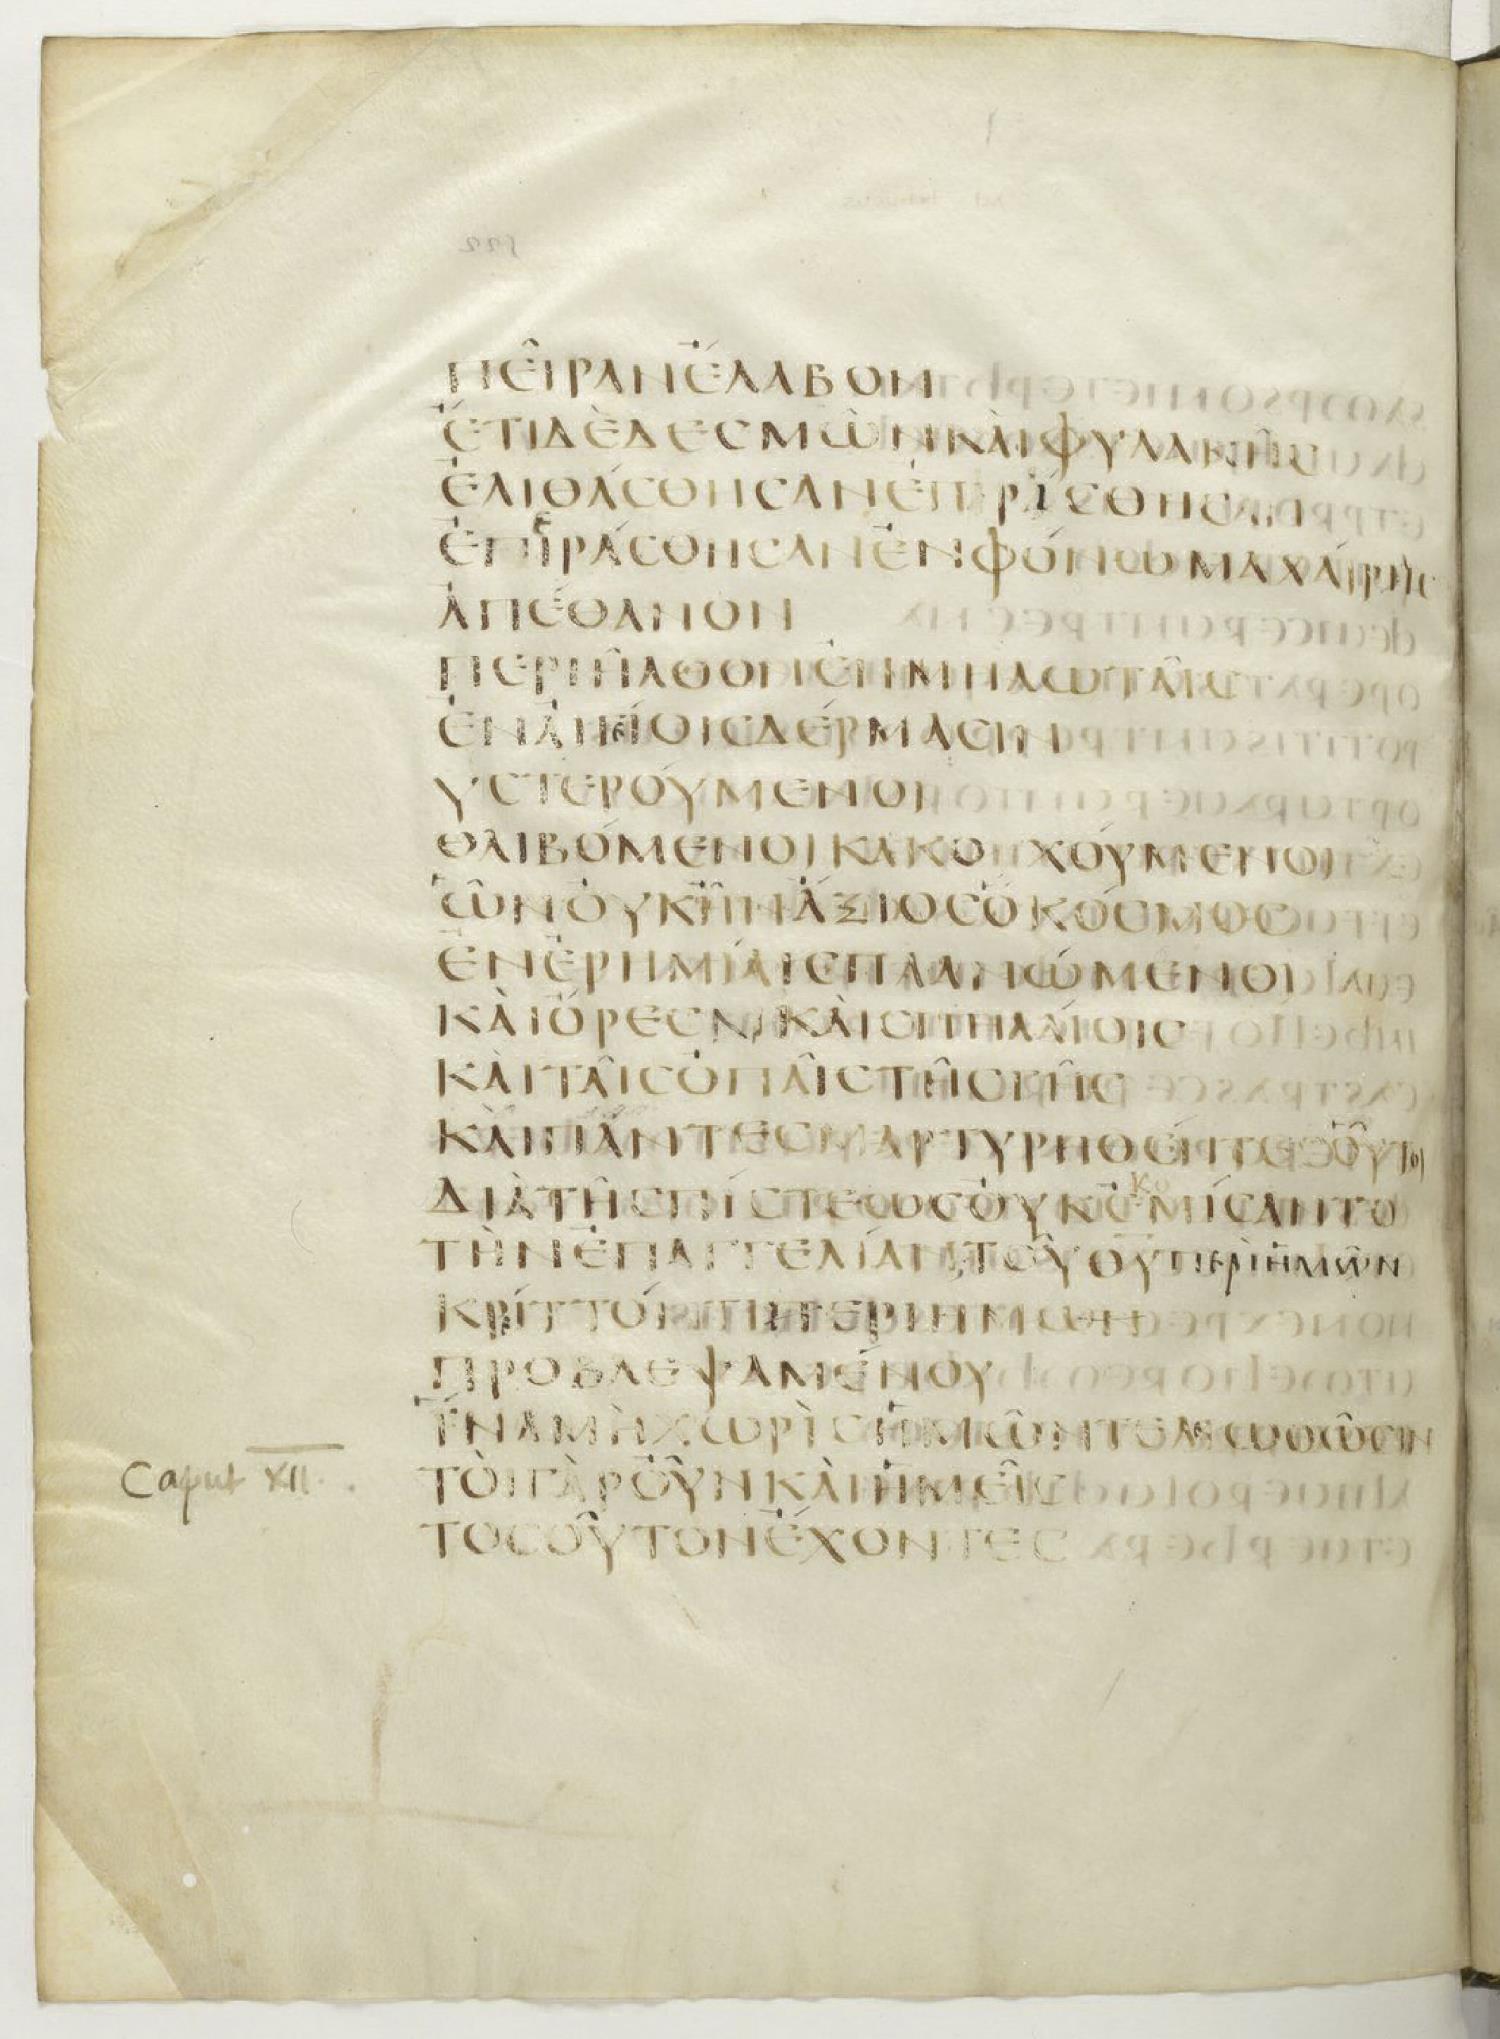 ΠΕῖΡΑΝἔΛΑΒΟΝ
ἔΤΙΔὲΔΕΣΜῶΝΚΑὶΦΥΛΑΚῆΣ
ἐΛΙΘΆΣΘΗΣΑΝἐΠΡΊΣΘΗΣΑΝ
ἐΠΙΡΆΣΘΗΣΑΝἐΝΦΌΝΩΜΑΧΑΊΡΗΣ
ἀΠΈΘΑΝΟΝ
ΠΕΡΙῆΛΘΟΝἐΝΜΗΛΩΤΑῖΣ
ἐΝΑἰΓΊΟΙΣΔΈΡΜΑΣΙΝ
ΥΣΤΕΡΟΎΜΕΝΟΙ
ΘΛΙΒΌΜΕΝΟΙΚΑΚΟΙΧΟΎΜΕΝΟΙ
ὧΝΟὐΚἦΝἄΞΙΟΣὁΚΌΣΜΟΣ
ἐΝἐΡΗΜΊΑΙΣΠΛΑΝΏΜΕΝΟΙ
ΚΑὶὄΡΕΣΙΝΚΑὶΣΠΗΛΑΊΟΙΣ
ΚΑὶΤΑῖΣὀΠΑῖΣΤῆΣΓῆΣ
ΚΑὶΠΆΝΤΕΣΜΑΡΤΥΡΗΘΈΝΤΕΣΟὗΤΟΙ
ΔΙὰΤῆΣΠΊΣΤΕΩΣΟὐΚΟΜΊΣΑΝΤΟ
ΤῊΝἐΠΑΓΓΕΛΊΑΝΤΟῦΘΥΠΕΡὶἡΜῶΝ
ΚΡΊΤΤΌΝΤΙΠΕΡΙΗΜΩΝ
ΠΡΟΒΛΕΨΑΜΈΝΟΥ
ἵΝΑΜῊΧΩΡὶΣἡΜῶΝΤΕΛΕΙΩΘῶΣΙΝ
Caput XII. ΤΟΙΓΑΡΟῦΝΚΑὶἡΜΕῖΣ
ΤΟΣΟῦΤΟΝἔΧΟΝΤΕΣ